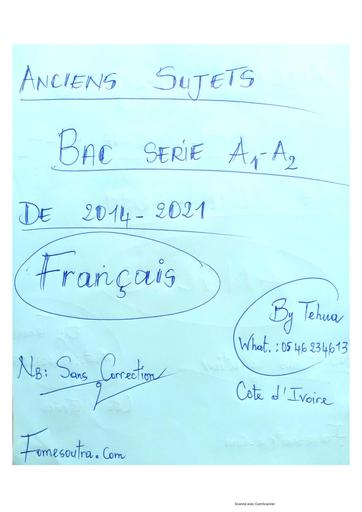 ANCIENS SUJETS
BAC SERIE A1-A2
DE 2014-2021
Français
By Tehua
What.: 0546234613
NB: Sans Correction
Côte d'Ivoire
Fomesoutra.com
Scanné avec CamScanner